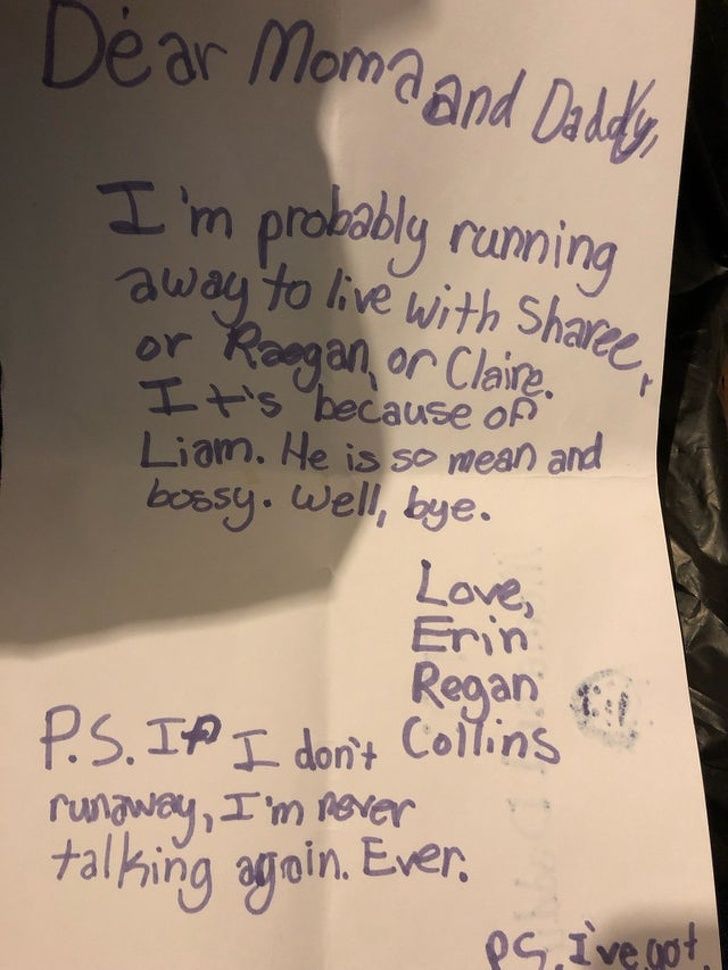 Dear Moma and Daddy,
I'm probably running
away to live with Sharee,
or Raegan, or Claire.
It's because of
Liam. He is so mean and
bossy. Well, bye.
Love,
Erin
Regan
Collins
P.S. If I don't
runaway, I'm never
talking again. Ever.
P.S. I've got